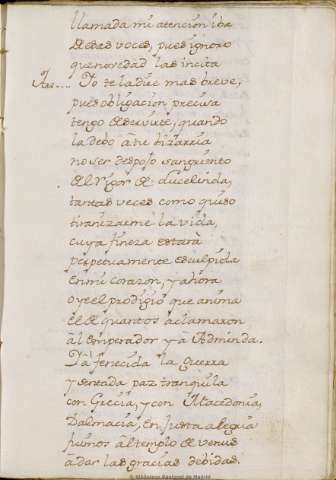 llamada mi atencion iba
de estas voces, pues ignoro
que novedad las incita
Yo te la dire mas breve,
pues obligacion precisa
tengo de servirte, quando
la debo à tu bizarria
no ser despojo sangriento
del rigor de Lucelinda,
tantas veces como quiso
tiranizarme la vida,
cuya fineza estarà
perpetuamente esculpida
en mi corazon, y ahora
oye el prodigio que anima
el de quantos aclamaron
al emperador y a Adminda.
Ya fenecida la guerra
y sentada paz tranquila
con Grecia, y con Macedonia,
Dalmacia, en justa alegria
fuimos al templo de Venus
a dar las gracias debidas.
Biblioteca Nacional de Madrid